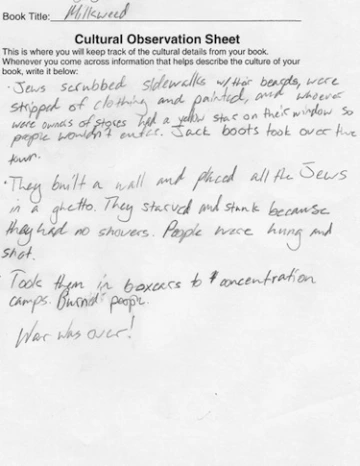 Book Title: Milkweed
Cultural Observation Sheet
This is where you will keep track of the cultural details from your book.
Whenever you come across information that helps describe the culture of
your book, write it below:
· Jews scrubbed sidewalks w/their beards, were
stripped of clothing and painted, and whoever
were owners of stores had a yellow star on their window so
people wouldn't enter. Jack boots took over the
town.
· They built a wall and placed all the Jews
in a ghetto. They starved and stunk because
they had no showers. People were hung and
shot.
Took them in boxcars to concentration
camps. Burned people.
War was over!